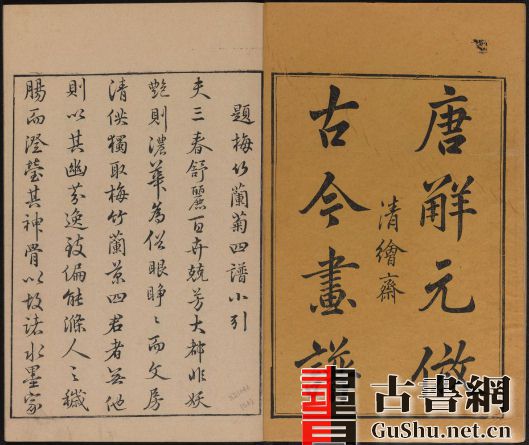 唐解元倣
古今畫譜
清繪齋
題梅竹蘭菊四譜小引
夫三春舒麗百卉競芳大都非妖
艷則濃華為俗眼睁々而文房
清供獨取梅竹蘭菊四君者無他
則以其幽芬逸致偏能滌人之穢
腸而澄瑩其神骨以故諸水墨家
古書網
GuShu.net.cn